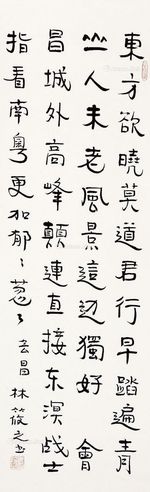 東方欲曉莫道君行早踏遍青
山人未老風景這边獨好 會
昌城外高峰顛連直接东溟战士
指看南粤更加郁〻葱〻 林筱之书